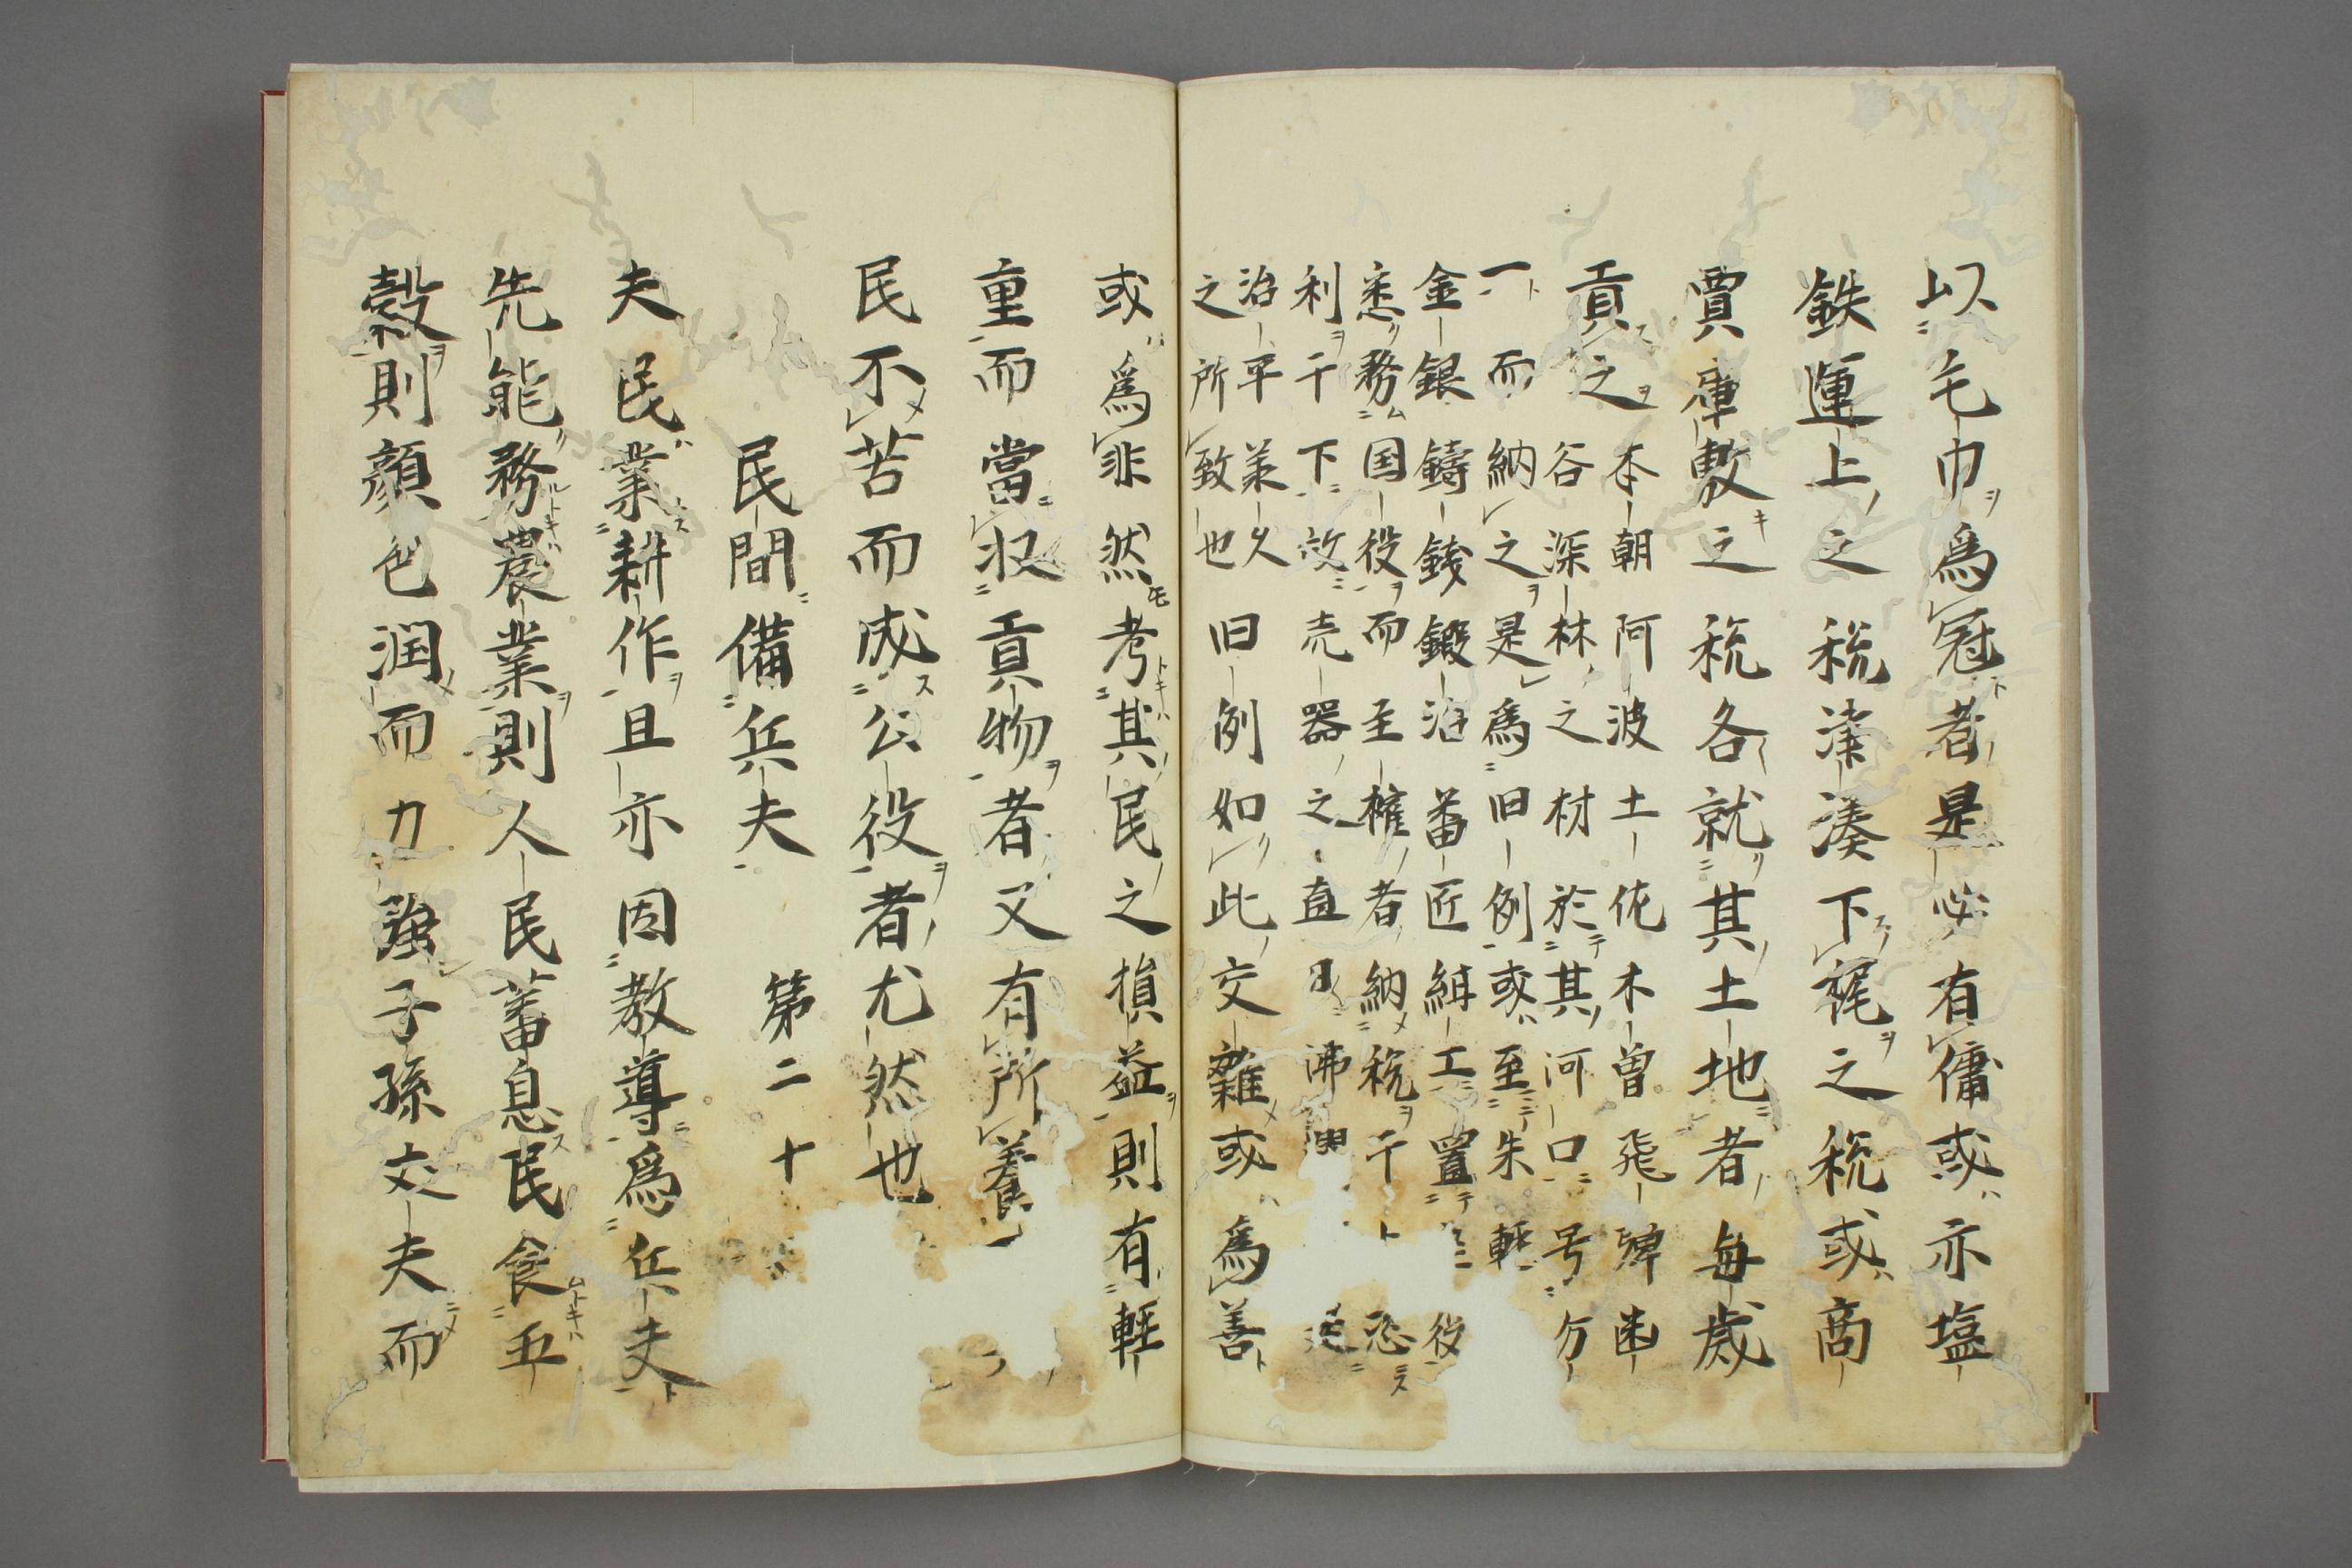 以毛巾為冠者是必有傭或亦塩
鉄運上之税津湊下裾之税或商
賈庫敷之税各就其土地者毎歳
貢之
本朝阿波土佐木曽飛騨
谷深林之材於其河口号分
一而納之是為旧例或至朱
金銀鋳銭鍛治番匠組工置役
悉務国役而至権者納税千恐
利千下效売器之直
治平兼久
之所致也
旧例如此交雑或為善
或為非然考其民之損益則有軽
重而當収貢物者又有所養
民不苦而成公役者尤然也
民間備兵夫 第二十
夫民業耕作且亦因教導為兵夫
先能務農業則人民蓄息民食五
穀則顔色潤而力強子孫交夫而